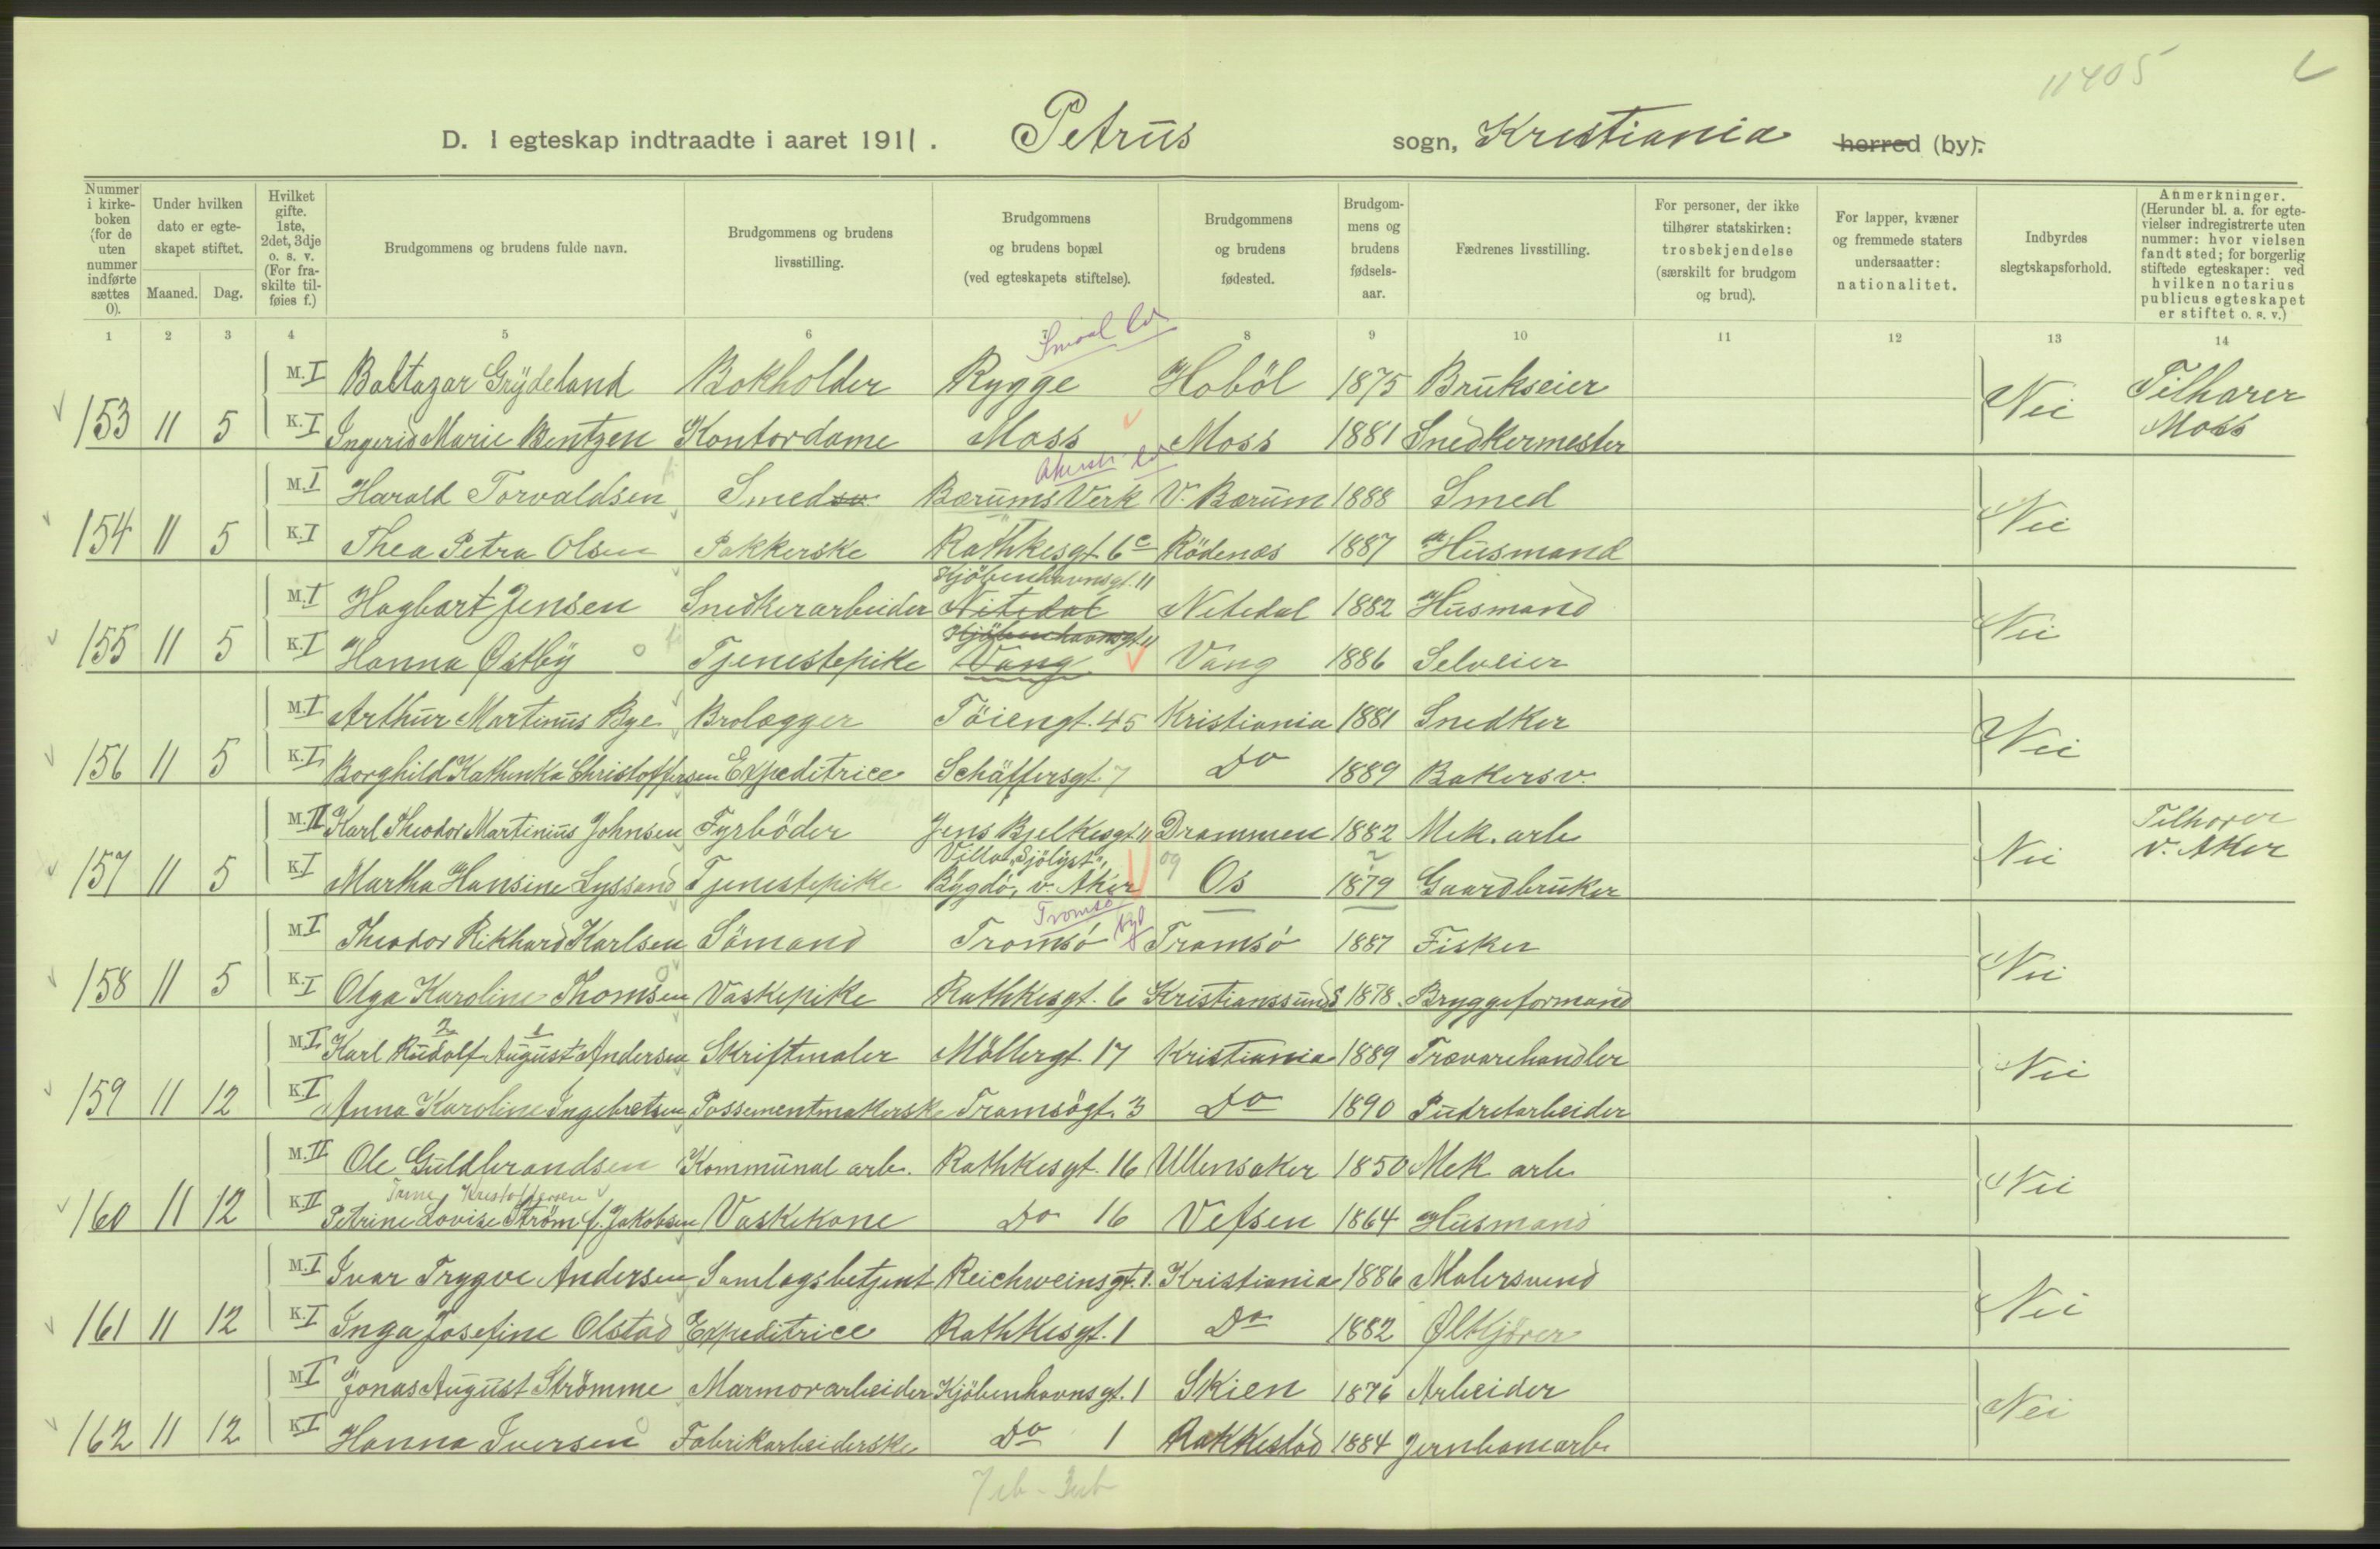 11405
D. I egteskap indtraadte i aaret 1911. Petrus sogn, Kristiania herred (by).
Nummer i kirke-boken (for de uten nummer indførte sættes 0).
Under hvilken dato er egte-skapet stiftet.
Maaned. Dag.
Hvilket gifte. 1ste, 2det, 3dje o. s. v. (For fra-skilte til-føies f.)
Brudgommens og brudens fulde navn.
Brudgommens og brudens livsstilling.
Brudgommens og brudens bopæl (ved egteskapets stiftelse).
Brudgommens og brudens fødested.
Brudgom-mens og brudens fødsels-aar.
Fædrenes livsstilling.
For personer, der ikke tilhører statskirken: trosbekjendelse (særskilt for brudgom og brud).
For lapper, kvæner og fremmede staters undersaatter: nationalitet.
Indbyrdes slegtskapsforhold.
Anmerkninger. (Herunder bl. a. for egte-vielser indregistrerte uten nummer: hvor vielsen fandt sted; for borgerlig stiftede egteskaper: ved hvilken notarius publicus egteskapet er stiftet o. s. v.)
1 2 3 4 5 6 7 8 9 10 11 12 13 14
M. I Baltazar Grydeland Bokholder Rygge Hobøl 1875 Brukseier
153 11 5 K. I Ingerid Marie Bentzen Kontordame Moss Moss 1881 Snedkermester Nei Tilhører Moss
M. I Harald Torvaldsen Smedsv. Bærums Verk V. Bærum 1888 Smed
154 11 5 K. I Thea Petra Olsen Pakkerske Rathkesgt. 6c Rödenæs 1887 Husmand Nei
Kjöbenhavnsgt. 11
M. I Hagbart Jensen Snedkerarbeider Nitedal Nitedal 1882 Husmand
Kjöbenhavnsgt. 11
155 11 5 K. I Hanna Østby Tjenestepike Vang Vang 1886 Selveier Nei
M. I Arthur Martinus Bye Brolægger Töiengt. 45 Kristiania 1881 Snedker
156 11 5 K. I Borghild Kathinka Christoffersen Expeditrice Schäffersgt. 7 Do 1889 Bakersv. Nei
M. II Karl Theodor Martinius Johnsen Fyrböder Jens Bjelkesgt. 11 Drammen 1882 Mek. arb
Villa "Sjölyst",
157 11 5 K. I Martha Hansine Lyssand Tjenestepike Bygdö, v. Aker Os 1879 Gaardbruker Nei Tilhører v. Aker
Tromsö
M. I Theodor Rikhard Karlsen Sömand Tromsö Tromsö 1887 Fisker
158 11 5 K. I Olga Karoline Thomsen Vaskepike Rathkesgt. 6 Kristianssund S 1878 Bryggeformand Nei
2 1
M. I Karl Rudolf August Andersen Skriftmaler Möllergt. 17 Kristiania 1889 Trævarehandler
159 11 12 K. I Anna Karoline Ingebretsen Possementmakerske Tromsögt. 3 Do 1890 Pudretarbeider Nei
M. II Ole Guldbrandsen Kommunal arb. Rathkesgt. 16 Ullensaker 1850 Mek arb
Trine Kristoffersen
160 11 12 K. II Petrine Lovise Ström f. Jakobsen Vaskekone Do 16 Vefsen 1864 Husmand Nei
M. I Ivar Trygve Andersen Samlagsbetjent Reichweinsgt. 1. Kristiania 1886 Malersvend
161 11 12 K. I Inga Josefine Olstad Expeditrice Rathkesgt. 1 Do 1882 Ølkjører Nei
M. I Jonas August Strömme Marmorarbeider Kjöbenhavnsgt. 1 Skien 1876 Arbeider
162 11 12 K. I Hanna Iversen Fabrikarbeiderske Do 1 Rakkestad 1884 Jernbanearb. Nei